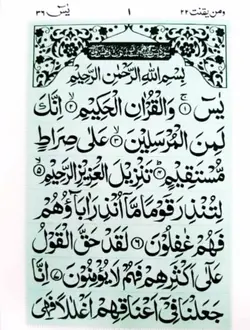 ومن يقنت ٢٢
١
يٰسٓ ٣٦
بِسْمِ اللّٰهِ الرَّحْمٰنِ الرَّحِيْمِ
يٰسٓ ۚ﴿١﴾ وَالْقُرْاٰنِ الْحَكِيْمِ ۙ﴿٢﴾ اِنَّكَ
لَمِنَ الْمُرْسَلِيْنَ ۙ﴿٣﴾ عَلٰى صِرَاطٍ
مُّسْتَقِيْمٍ ؕ﴿٤﴾ تَنْزِيْلَ الْعَزِيْزِ الرَّحِيْمِ ۙ﴿٥﴾
لِتُنْذِرَ قَوْمًا مَّاۤ اُنْذِرَ اٰبَآؤُهُمْ
فَهُمْ غٰفِلُوْنَ ﴿٦﴾ لَقَدْ حَقَّ الْقَوْلُ
عَلٰۤى اَكْثَرِهِمْ فَهُمْ لَا يُؤْمِنُوْنَ ﴿٧﴾ اِنَّا
جَعَلْنَا فِيْۤ اَعْنَاقِهِمْ اَغْلٰلًا فَهِيَ